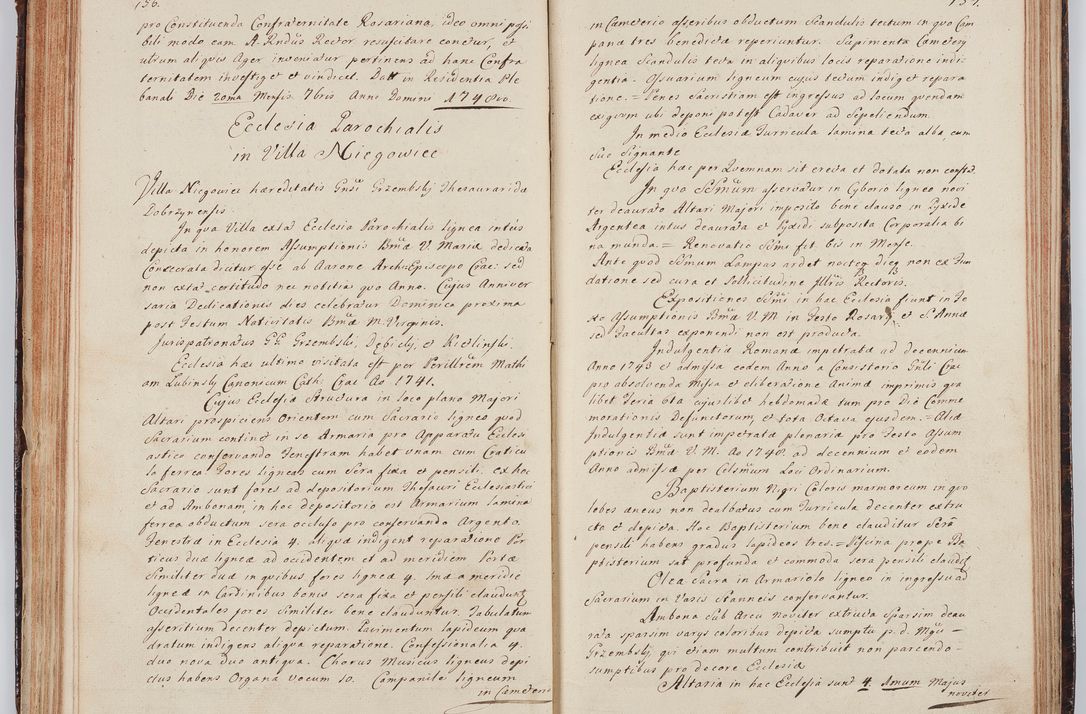 156.
pro Constituenda Confraternitate Rosariana, ideo omni possi
bili modo eam A. Rndus Rector resuscitare conetur, et
utrum aliquis Ager inveniatur pertinens ad hanc Confra
ternitatem investiget et vindicet. Datt in Residentia Ple
banali Die 20ma Mensis 7bris Anni Domini 1748vo.
Ecclesia Parochialis
in Villa Niegowiec
Villa Niegowice hæreditatis Gnsi Grzembskj Thesaurarida
Dobrzynensis.
In qua Villa extat Ecclesia Parochialis lignea intus
depicta in honorem Assumptionis Bmæ V. Mariæ dedicata
Consecrata dicitur esse ab Aarone Archi Episcopo Crac: sed
non extat certitudo nec notitia quo Anno. Cujus Anniver
saria Dedicationis dies celebratur Dominica proxima
post Festum Nativitatis Bmæ M. Virginis.
Jurispatronatus GG. Grzembski, Dębickj, et Kietlinski.
Ecclesia hæc ultimo visitata est per Perillrem Mathi
am Lubinskj Canonicum Cath: Crac Ao 1741.
Cujus Ecclesiæ Structura in loco plano Majori
Altari prospiciens Orientem cum Sacrario ligneo quod
Sacrarium continet in se Armaria pro Apparatu Ecclesi
astico conservando Fenestram habet unam cum Craticu
la ferrea Fores ligneas cum Sera fixa et pensili. ex hoc
Sacrario sunt fores ad depositorium Thesauri Ecclesiastici
et ad Ambonam, in hoc depositorio est Armarium lamina
ferrea obductum sera occluso pro conservando Argento.
Fenestræ in Ecclesia 4. aliqua indigent reparatione Por
ticus duæ ligneæ ad occidentem et ad meridiem Portæ
Similiter duæ in quibus fores ligneæ 4. Una a meridie
ligneæ in Cardinibus bonis sera fixa et pensili clauduntur
Occidentales fores Similiter bene clauduntur. Tabulatum
asseritium decenter depictum. Pavimentum lapideum qua
dratum indigens aliqua reparatione. Confessionalia 4.
duo nova duo antiqua. Chorus Musicus ligneus depi
ctus habens Organa vocum 10. Campanile ligneum
in Cemeterio
157.
in Cemeterio asseribus obductum Scandulis tectum in quo Cam
panæ tres benedictæ reperiuntur. Supimenta Cemeterij
lignea Scandulis tecta in aliquibus locis reparatione indi
gentia. Ossuarium ligneum cujus tectum indiget repara
tione. = Penes Sacristiam est ingressus ad locum quendam
exiguum ubi deponi potest Cadaver ad Sepeliendum.
In medio Ecclesiæ Turricula lamina tecta alba, cum
Suo Signante
Ecclesia hæc per Quemnam sit erecta et dotata non constat.
In quo SSmum asservatur in Cyborio ligneo novi
ter deaurato Altari Majori imposito bene clauso in Pyxide
Argentea intus deaurata et Pyxidi subposita Corporalia bi
na munda. = Renovatio SSmi fit bis in Mense.
Ante quod SSmum Lampas ardet noctes dieq non ex Fun
datione sed cura et Sollicitudine Illris Rectoris.
Expositiones SSmi in hac Ecclesia fiunt in Fe
sto Assumptionis Bmæ V. M in Festo Rosarij et S. Annæ
sed Facultas exponendi non est producta.
Indulgentiæ Romanæ impetratæ ad decennium
Anno 1743 et admissæ eodem Anno a Consistorio Gnli Crac
pro absolvenda Missa et liberatione Animæ imprimis qua
libet Feria 6ta cujuslibet hebdomadæ tum pro Die Comme
morationis Defunctorum, et tota Octava ejusdem. = Aliæ
Indulgentiæ sunt impetratæ plenariæ pro Festo Assum
ptionis Bmæ V. M. Ao 1740. ad decennium et eodem
Anno admissæ per Celsmum Loci Ordinarium.
Baptisterium Nigri Coloris marmoreum in quo
lebes æneus non dealbatus cum Turricula decenter extru
cta et depicta. Hoc Baptisterium bene clauditur Serâ
pensili habens gradus lapideos tres. = Piscina prope Ba
ptisterium sat profunda et commoda sera pensili claudit
Olea Sacra in Armariolo ligneo in ingressu ad
Sacrarium in Vasis Stanneis conservantur.
Ambona sub Arcu noviter extructa Sparsim deau
rata sparsim varys coloribus depicta sumptu p. d. Mgci
Grzembskj qui etiam multum contribuit non parcendo
sumptibus pro decore Ecclesiæ
Altaria in hac Ecclesia sunt 4. 1mum Majus
noviter